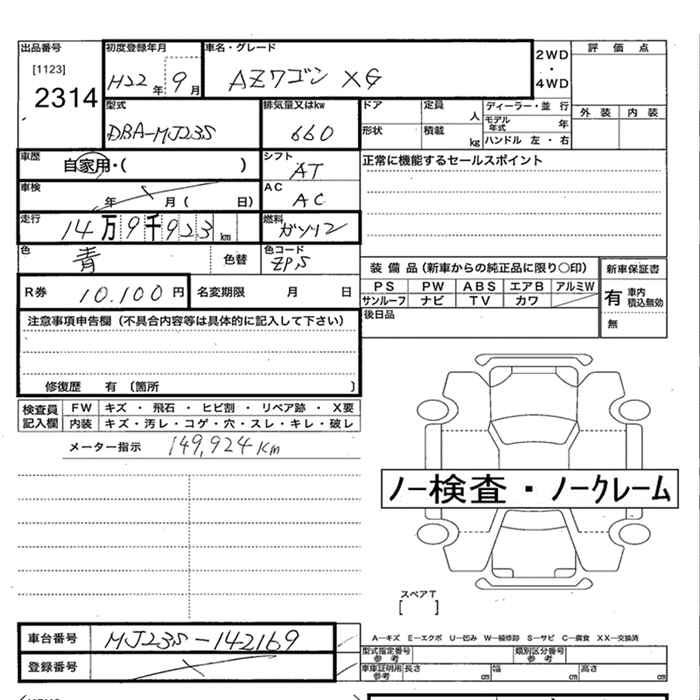 出品番号 初度登録年月 車名・グレード 2WD 評価点
[1123] ・
2314 H22年 9月 AZワゴン XG 4WD 外装 内装
型式 排気量又はkw ドア 定員 人 ディーラー・並 行
DBA-MJ23S 660 形状 積載 kg モデル年式 年
ハンドル 左・右
車歴 自家用・( ) シフト AT 正常に機能するセールスポイント
車検 年 月( 日) AC AC
走行 14万9千923km 燃料 ガソリン
色 青 色替 色コード ZPS
装備品(新車からの純正品に限り○印) 新車保証書
R券 10.100円 名変期限 月 日 PS PW ABS エアB アルミW 有 車内積込無効
サンルーフ ナビ TV カワ 無
注意事項申告欄(不具合内容等は具体的に記入して下さい) 後日品
修復歴 有 〔箇所 〕
検査員記入欄 FW キズ・飛石・ヒビ割・リペア跡・X要
内装 キズ・汚レ・コゲ・穴・スレ・キレ・破レ
メーター指示 149,924Km
ノー検査・ノークレーム
スペアT
[ ]
車台番号 MJ23S-142169 A―キズ E―エクボ U―凹み W―補修跡 S―サビ C―腐食 XX―交換済
登録番号 型式指定番号 参考 類別区分番号 参考
車庫証明用 参考 長さ cm 幅 cm 高さ cm